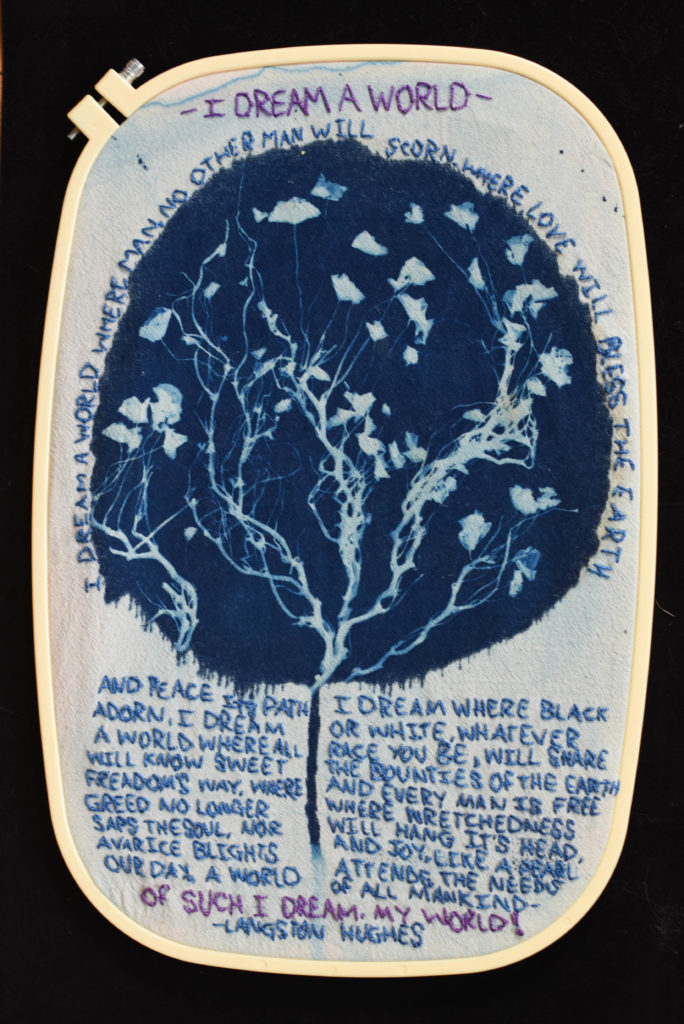 - I DREAM A WORLD -
I DREAM A WORLD WHERE MAN NO OTHER MAN WILL SCORN. WHERE LOVE WILL BLESS THE EARTH
AND PEACE ITS PATH
ADORN. I DREAM
A WORLD WHERE ALL
WILL KNOW SWEET
FREADOM'S WAY, WHERE
GREED NO LONGER
SAPS THE SOUL, NOR
AVARICE BLIGHTS
OUR DAY. A WORLD
I DREAM WHERE BLACK
OR WHITE, WHATEVER
RACE YOU BE, WILL SHARE
THE BOUNTIES OF THE EARTH
AND EVERY MAN IS FREE
WHERE WRETCHEDNESS
WILL HANG IT'S HEAD,
AND JOY, LIKE A PEARL
ATTENDS THE NEEDS
OF ALL MANKIND-
OF SUCH I DREAM. MY WORLD!
-LANGSTON HUGHES